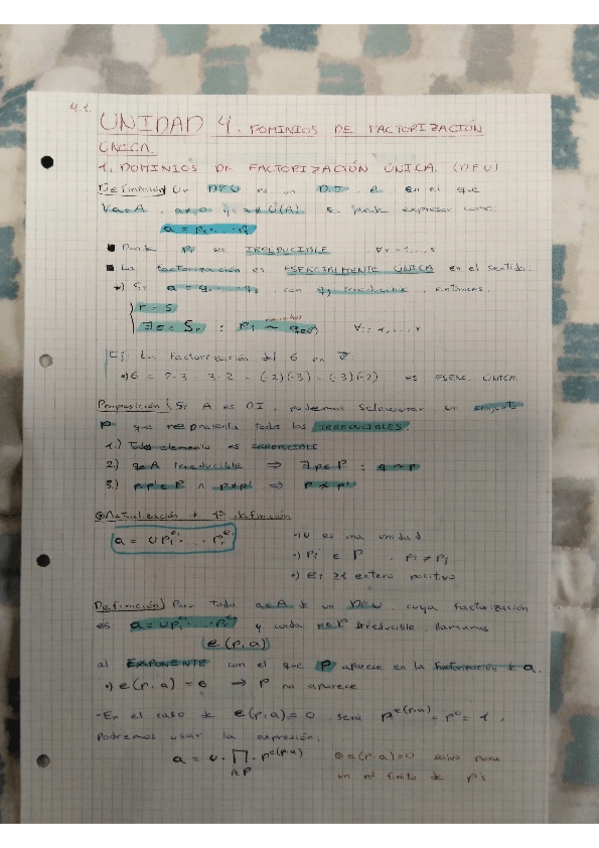 4.1
UNIDAD 4. DOMINIOS DE FACTORIZACIÓN
ÚNICA.
1. DOMINIOS DE FACTORIZACIÓN ÚNICA. (DFU)
Definición} Un DFU es un DI A en el que
∀a∈A, a≠0 y a∉U(A) se puede expresar como:
a = p₁ ··· pᵣ
Donde pᵢ es IRREDUCIBLE ∀i=1,...,r
La factorización es ESENCIALMENTE ÚNICA en el sentido:
•) Si a = q₁ ··· qₛ con qⱼ irreducible, entonces:
r = s
∃σ ∈ Sᵣ : pᵢ ~ q_σ(i) ∀i = 1,...,r
Ej: La factorización del 6 en ℤ
•) 6 = 2·3 = 3·2 = (-2)(-3) = (-3)(-2) es ESENC. ÚNICA.
Proposición} Si A es DI, podemos seleccionar un conjunto
P que representa todos los IRREDUCIBLES:
1.) Todo elemento es IRREDUCIBLE
2) q∈A irreducible ⇒ ∃p∈P : q~p
3.) p,p'∈P ∧ p≠p' ⇒ p≁p'
definición
a = u p₁^e₁ ··· pᵣ^eᵣ
•) u es una unidad
•) pᵢ ∈ P . pᵢ ≠ pⱼ
•) eᵢ ≥ 1 entero positivo
Definición} Para todo a∈A de un DFU, cuya factorización
es a = u p₁^e₁ ··· pᵣ^eᵣ y cada p∈P irreducible, llamamos
e(p,a)
al EXPONENTE con el que P aparece en la factorización de a.
•) e(p,a) = 0 ⇒ P no aparece
-En el caso de e(p,a)=0, será p^e(p,a) = p⁰ = 1,
Podremos usar la expresión:
a = u · ∏ p^e(p,a)
e(p,a)=0 salvo para
un nº finito de p's